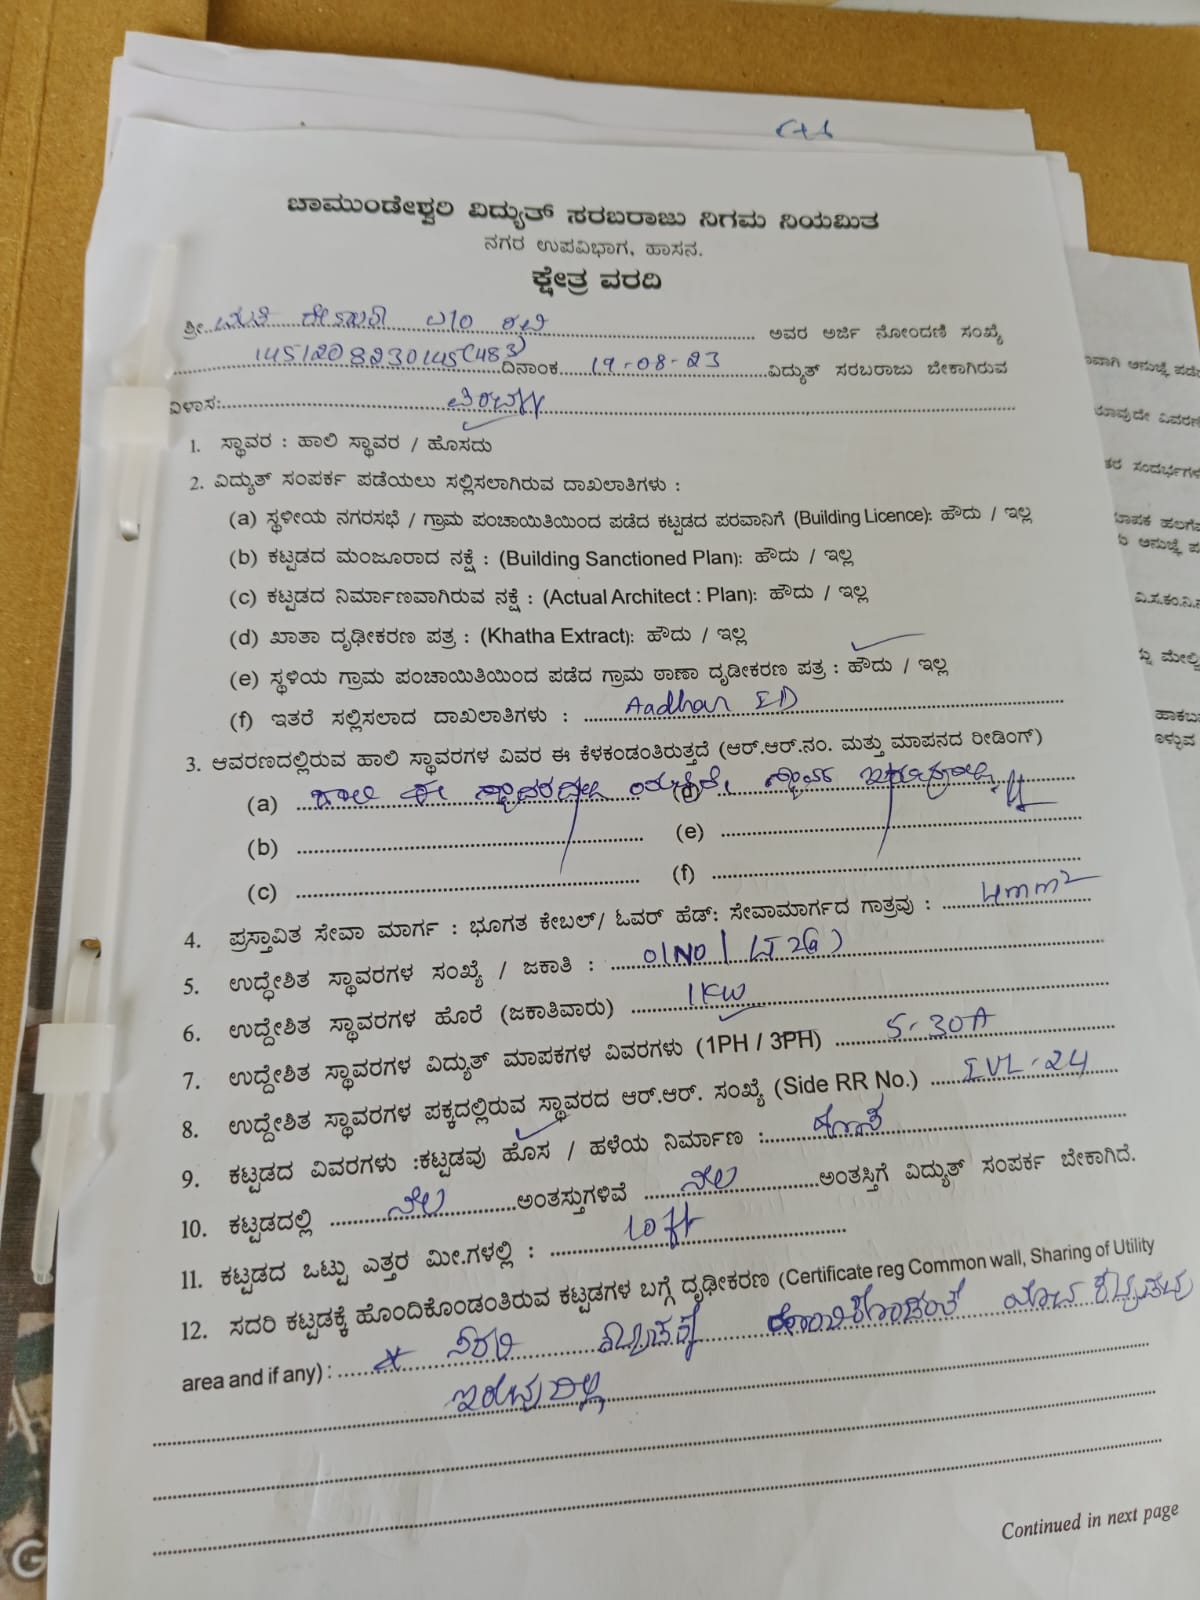 ಚಾಮುಂಡೇಶ್ವರಿ ವಿದ್ಯುತ್ ಸರಬರಾಜು ನಿಗಮ ನಿಯಮಿತ
ನಗರ ಉಪವಿಭಾಗ, ಹಾಸನ.
ಕ್ಷೇತ್ರ ವರದಿ
ಶ್ರೀ ಅವರ ಅರ್ಜಿ ನೋಂದಣಿ ಸಂಖ್ಯೆ
ದಿನಾಂಕ 19-08-23 ವಿದ್ಯುತ್ ಸರಬರಾಜು ಬೇಕಾಗಿರುವ
ವಿಳಾಸ:
1. ಸ್ಥಾವರ : ಹಾಲಿ ಸ್ಥಾವರ / ಹೊಸದು
2. ವಿದ್ಯುತ್ ಸಂಪರ್ಕ ಪಡೆಯಲು ಸಲ್ಲಿಸಲಾಗಿರುವ ದಾಖಲಾತಿಗಳು :
(a) ಸ್ಥಳೀಯ ನಗರಸಭೆ / ಗ್ರಾಮ ಪಂಚಾಯಿತಿಯಿಂದ ಪಡೆದ ಕಟ್ಟಡದ ಪರವಾನಿಗೆ (Building Licence): ಹೌದು / ಇಲ್ಲ
(b) ಕಟ್ಟಡದ ಮಂಜೂರಾದ ನಕ್ಷೆ : (Building Sanctioned Plan): ಹೌದು / ಇಲ್ಲ
(c) ಕಟ್ಟಡದ ನಿರ್ಮಾಣವಾಗಿರುವ ನಕ್ಷೆ : (Actual Architect : Plan): ಹೌದು / ಇಲ್ಲ
(d) ಖಾತಾ ದೃಢೀಕರಣ ಪತ್ರ : (Khatha Extract): ಹೌದು / ಇಲ್ಲ
(e) ಸ್ಥಳಿಯ ಗ್ರಾಮ ಪಂಚಾಯಿತಿಯಿಂದ ಪಡೆದ ಗ್ರಾಮ ಠಾಣಾ ದೃಡೀಕರಣ ಪತ್ರ : ಹೌದು / ಇಲ್ಲ
(f) ಇತರೆ ಸಲ್ಲಿಸಲಾದ ದಾಖಲಾತಿಗಳು : Aadhar ID
3. ಆವರಣದಲ್ಲಿರುವ ಹಾಲಿ ಸ್ಥಾವರಗಳ ವಿವರ ಈ ಕೆಳಕಂಡಂತಿರುತ್ತದೆ (ಆರ್.ಆರ್.ನಂ. ಮತ್ತು ಮಾಪನದ ರೀಡಿಂಗ್)
(a) ಹಾಲಿ ಈ (d)
(b) (e)
(c) (f)
4. ಪ್ರಸ್ತಾವಿತ ಸೇವಾ ಮಾರ್ಗ : ಭೂಗತ ಕೇಬಲ್/ ಓವರ್ ಹೆಡ್: ಸೇವಾಮಾರ್ಗದ ಗಾತ್ರವು : 4mm2
5. ಉದ್ಧೇಶಿತ ಸ್ಥಾವರಗಳ ಸಂಖ್ಯೆ / ಜಕಾತಿ : 01NO
6. ಉದ್ದೇಶಿತ ಸ್ಥಾವರಗಳ ಹೊರೆ (ಜಕಾತಿವಾರು) 1KW
7. ಉದ್ದೇಶಿತ ಸ್ಥಾವರಗಳ ವಿದ್ಯುತ್ ಮಾಪಕಗಳ ವಿವರಗಳು (1PH / 3PH) 5-30A
8. ಉದ್ದೇಶಿತ ಸ್ಥಾವರಗಳ ಪಕ್ಕದಲ್ಲಿರುವ ಸ್ಥಾವರದ ಆರ್.ಆರ್. ಸಂಖ್ಯೆ (Side RR No.) IVL-24
9. ಕಟ್ಟಡದ ವಿವರಗಳು :ಕಟ್ಟಡವು ಹೊಸ / ಹಳೆಯ ನಿರ್ಮಾಣ :
10. ಕಟ್ಟಡದಲ್ಲಿ ನೆಲ ಅಂತಸ್ತುಗಳಿವೆ ನೆಲ ಅಂತಸ್ತಿಗೆ ವಿದ್ಯುತ್ ಸಂಪರ್ಕ ಬೇಕಾಗಿದೆ.
11. ಕಟ್ಟಡದ ಒಟ್ಟು ಎತ್ತರ ಮೀ.ಗಳಲ್ಲಿ : 10ft
12. ಸದರಿ ಕಟ್ಟಡಕ್ಕೆ ಹೊಂದಿಕೊಂಡಂತಿರುವ ಕಟ್ಟಡಗಳ ಬಗ್ಗೆ ದೃಢೀಕರಣ (Certificate reg Common wall, Sharing of Utility
area and if any) : ಹೊಂದಿಕೊಂಡಂತೆ
ಇರುವುದಿಲ್ಲ
Continued in next page